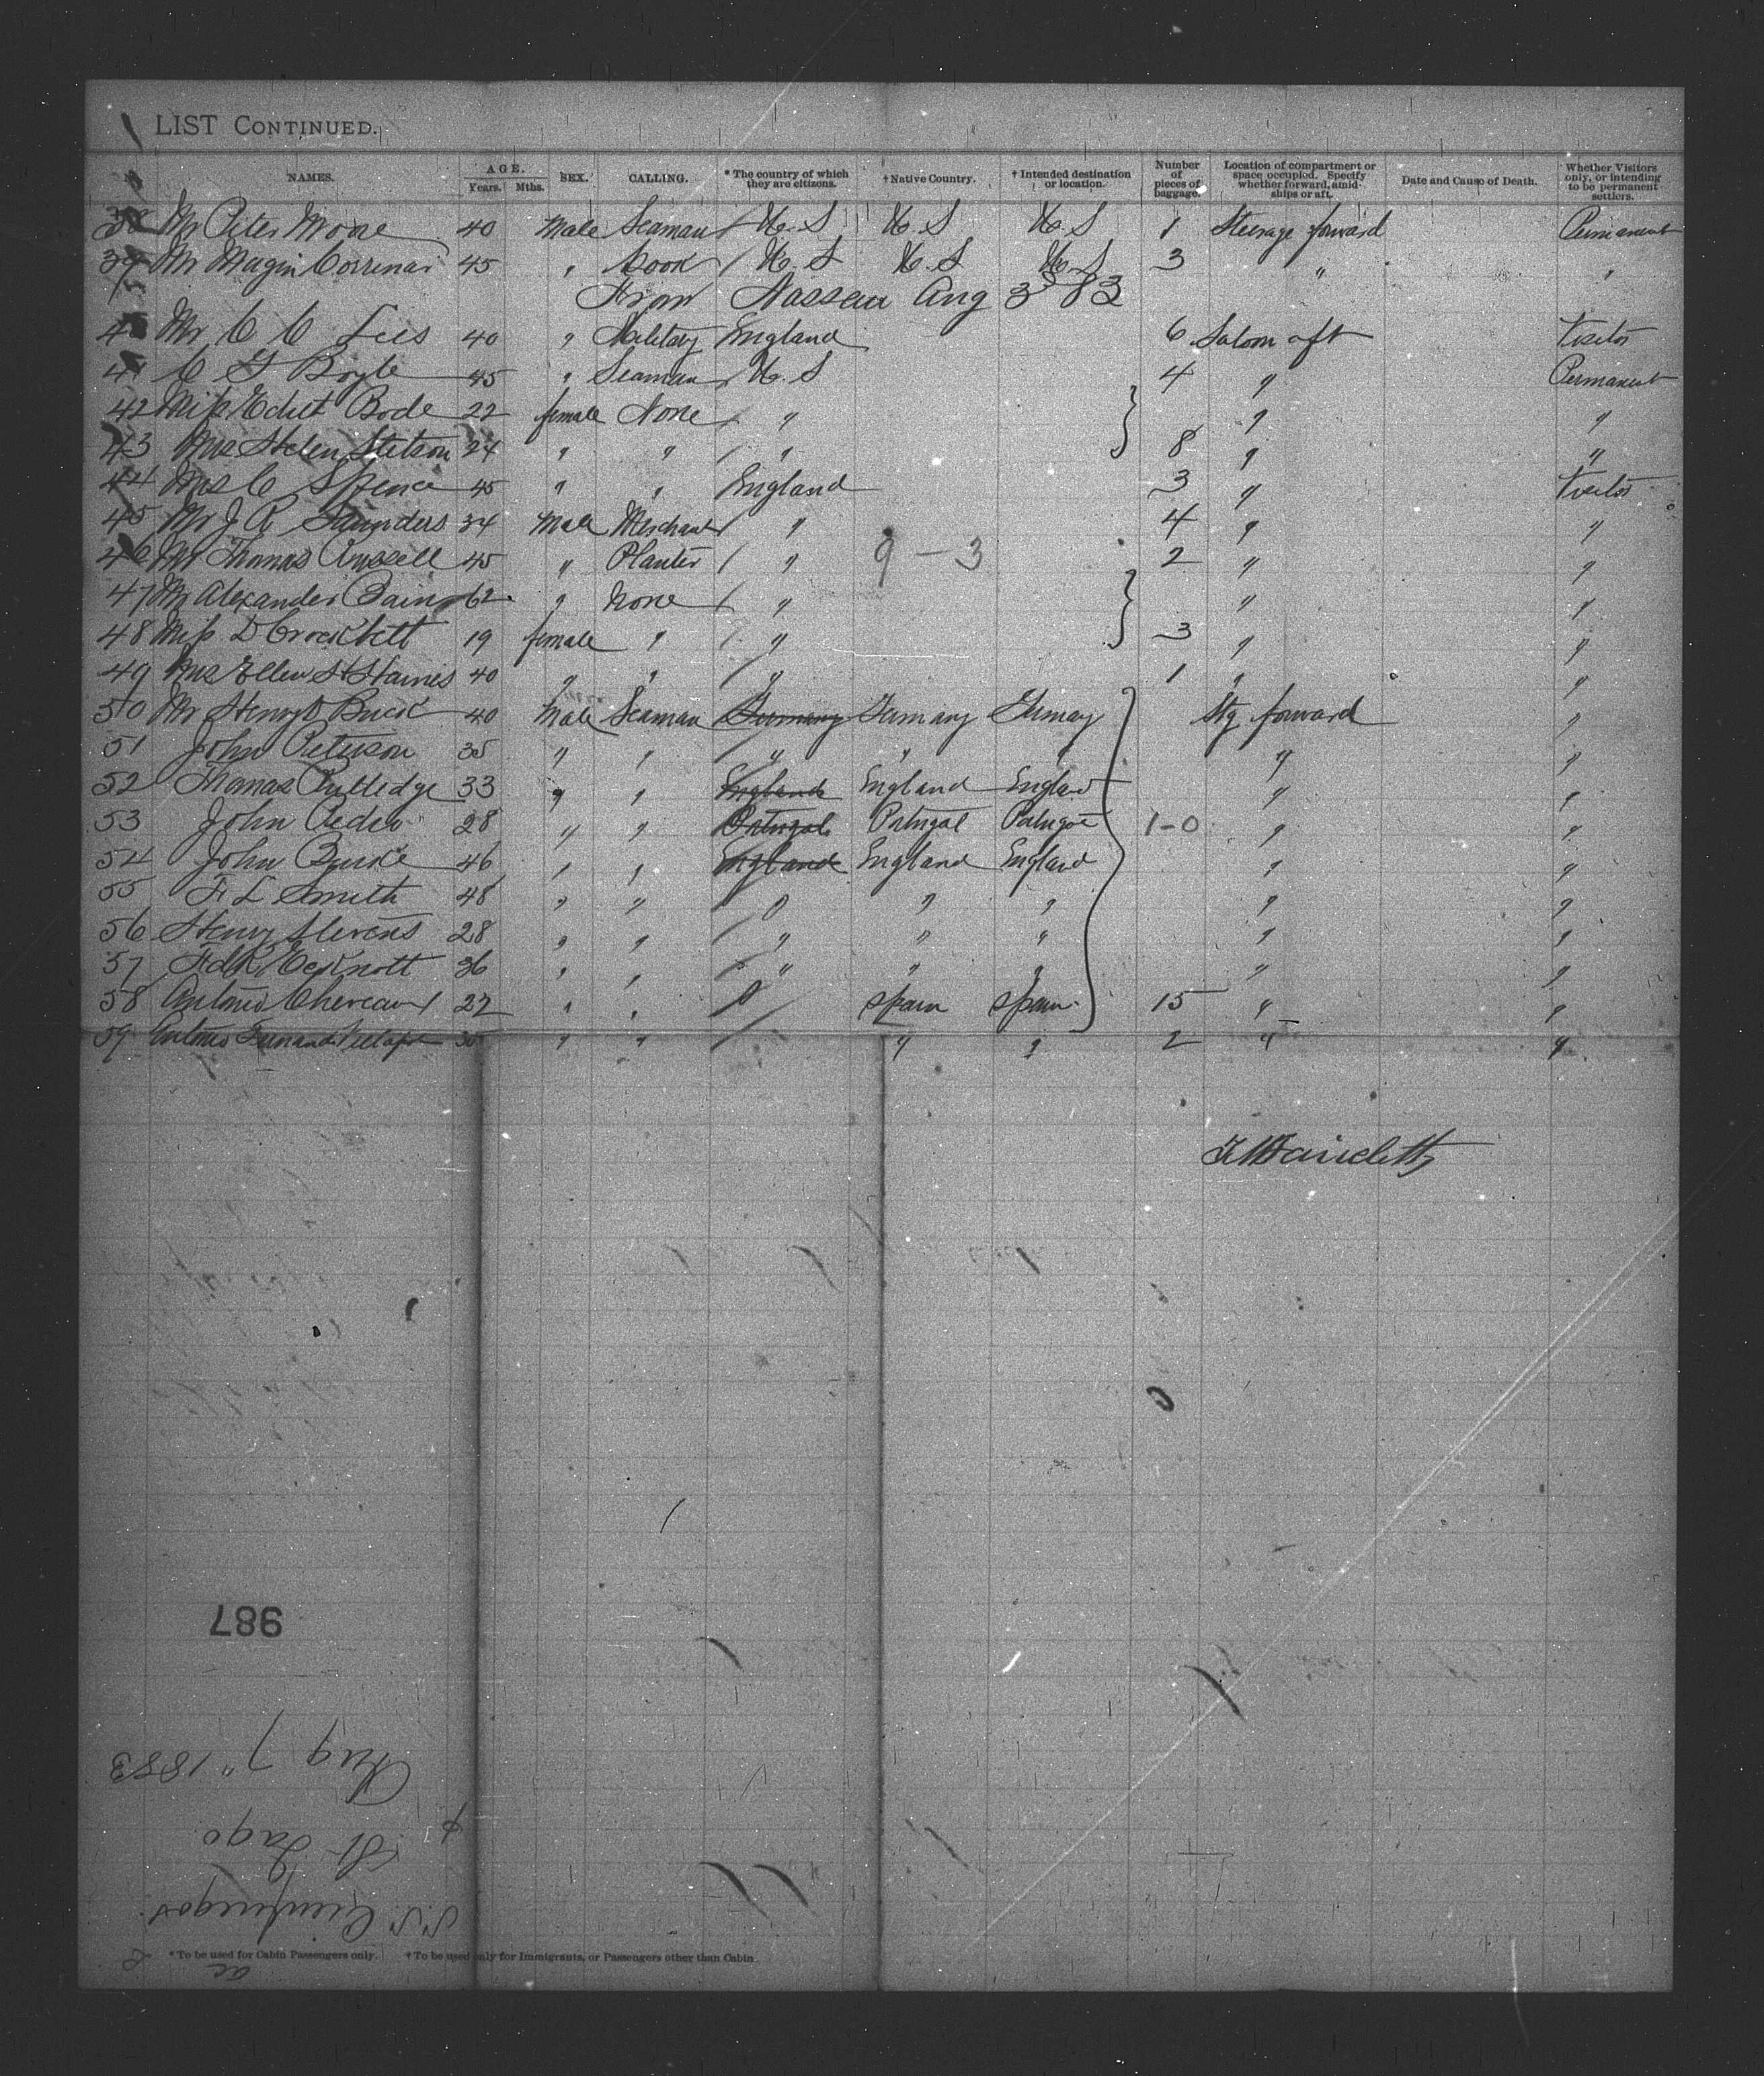 LIST CONTINUED.
NAMES. AGE. Years. Mths. SEX. CALLING. * The country of which they are citizens. † Native Country. † Intended destination or location. Number of pieces of baggage. Location of compartment or space occupied. Specify whether forward, amidships or aft. Date and Cause of Death. Whether Visitors only, or intending to be permanent settlers.
38 Mr Peter Moore 40 Male Seaman U.S U.S U.S 1 Steerage forward Permanent
39 Mr Magin 45 " Cook U.S U.S U.S 3 " "
From Nassau Aug 3d 83
40 Mr C C Lees 40 " Military England 6 Saloon aft Visitor
41 C J Boyle 45 " Seaman U.S 4 " Permanent
42 Miss Bode 22 female None " " "
43 Mrs Helen Stetson 24 " " " 8 " "
44 Mrs C Spence 45 " " England 3 " Visitor
45 Mr J R Saunders 34 Male Merchant " 4 " "
46 Mr Thomas Russell 45 " Planter " 9-3 2 " "
47 Mr Alexander Bain 62 " None " " "
48 Miss D Crockett 19 female " " 3 " "
49 Mrs Ellen 40 " " " 1 " "
50 Mr Henry Buck 40 Male Seaman Germany Germany Germany Stg forward "
51 John Peterson 35 " " " " " " "
52 Thomas Rutledge 33 " " England England England " "
53 John Pedro 28 " " Portugal Portugal Portugal 1-0 " "
54 John Burke 46 " " England England England " "
55 F L Smith 48 " " " " " "
56 Henry Stevens 28 " " " " " " "
57 Fdk 36 " " " " " " "
58 Antonio 22 " " Spain Spain 15 " "
59 Antonio " " " " 2 " "
987
Aug 7" 1883
St Jago
S.S. Cienfuegos
* To be used for Cabin Passengers only. † To be used only for Immigrants, or Passengers other than Cabin